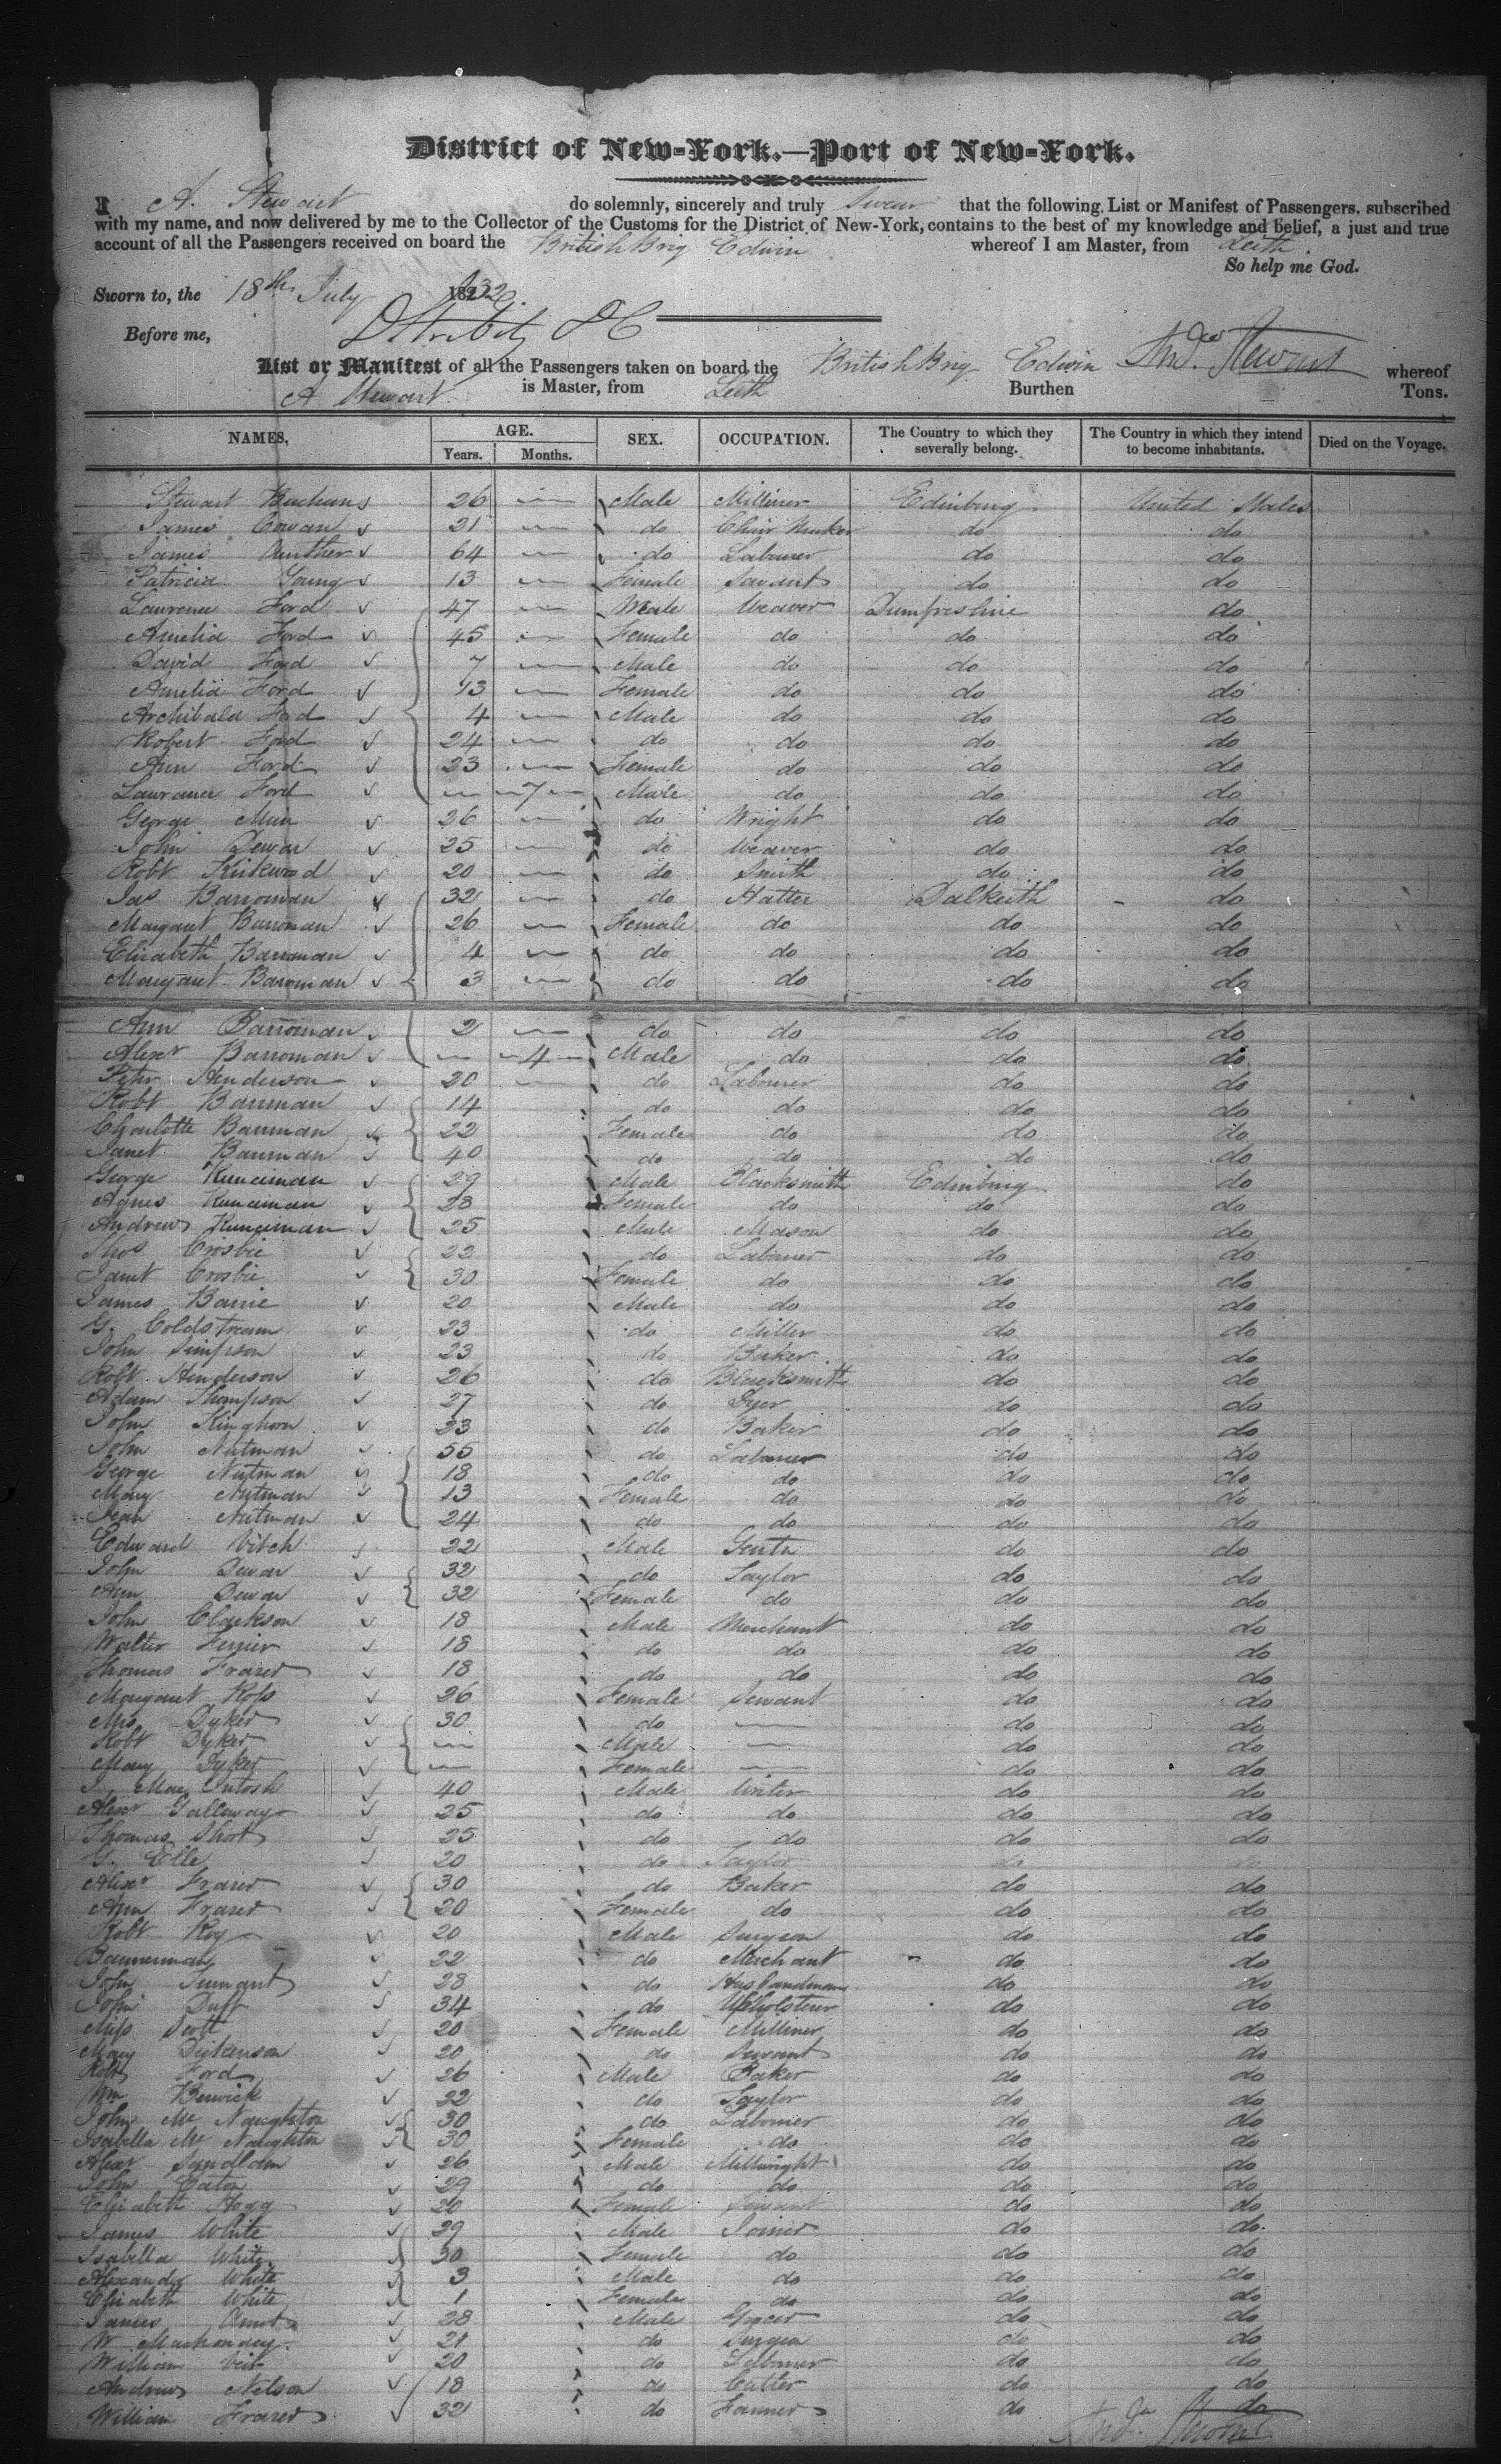 District of New-York.—Port of New-York.
I A. Stewart do solemnly, sincerely and truly Swear that the following List or Manifest of Passengers, subscribed
with my name, and now delivered by me to the Collector of the Customs for the District of New-York, contains to the best of my knowledge and belief, a just and true
account of all the Passengers received on board the British Brig Edwin whereof I am Master, from Leith
So help me God.
Sworn to, the 18th July 1832
Before me,
List or Manifest of all the Passengers taken on board the British Brig Edwin Andw Stewart whereof
A Stewart is Master, from Leith Burthen Tons.
NAMES, AGE. SEX. OCCUPATION. The Country to which they severally belong. The Country in which they intend to become inhabitants. Died on the Voyage.
Years. Months.
Stewart 26 Male Milliner Edinburg United States
James Cowan 21 do Chair Maker do do
James 64 do Labourer do do
Patricia Young 13 Female Servant do do
Laurence Ford 47 Male Weaver Dumfreshire do
Amelia Ford 45 Female do do do
David Ford 7 Male do do do
Amelia Ford 13 Female do do do
Archibald Ford 4 Male do do do
Robert Ford 24 do do do do
Ann Ford 23 Female do do do
Laurance Ford 7 Male do do do
George 26 do Wright do do
John Dewar 25 do Weaver do do
Robt Kirkwood 20 do Smith do do
Jas Barroman 32 do Hatter Dalkeith do
Margaret Barroman 26 Female do do do
Elizabeth Barroman 4 do do do do
Margaret Barroman 3 do do do do
Ann Barroman 2 do do do do
Alexr Barroman 4 Male do do do
Peter Henderson 20 do Labourer do do
Robt Barrman 14 do do do do
Charlotte Barrman 22 Female do do do
Janet Barrman 40 do do do do
George Runciman 29 Male Blacksmith Edinburg do
Agnes Runciman 28 Female do do do
Andrew Runciman 25 Male Mason do do
Thos Crosbie 22 do Labourer do do
Janet Crosbie 30 Female do do do
James Barrie 20 Male do do do
G. Coldstream 23 do Miller do do
John Simpson 23 do Baker do do
Robt Henderson 26 do Blacksmith do do
Adam Thompson 27 do Dyer do do
John Kinghorn 23 do Baker do do
John Nutman 55 do Labourer do do
George Nutman 18 do do do do
Mary Nutman 13 Female do do do
Jean Nutman 24 do do do do
Edward Vitch 22 Male do do
John Dewar 32 do Taylor do do
Ann Dewar 32 Female do do do
John Clarkson 18 Male Merchant do do
Walter Ferrier 18 do do do do
Thomas Fraser 18 do do do do
Margaret Ross 26 Female Servant do do
Mrs Dyker 30 do do do
Robt Dyker Male do do
Mary Dyker Female do do
J. MacIntosh 40 Male Writer do do
Alexr Galloway 25 do do do do
Thomas Short 25 do do do do
G. Elle 20 do Taylor do do
Alexr Fraser 30 do Baker do do
Ann Fraser 20 Female do do do
Robt Roy 20 Male Surgeon do do
Bannerman 22 do Merchant do do
John 28 do Husbandman do do
John Duff 34 do Upholsterer do do
Miss Scott 20 Female Milliner do do
Mary Dickenson 20 do Servant do do
Robt Ford 26 Male Baker do do
Wm Berwick 22 do Taylor do do
John Mc Naughton 30 do Labourer do do
Isabella Mc Naughton 30 Female do do do
Alexr 26 Male Millwright do do
John Eaton 29 do do do do
Elizabeth Hogg 20 Female Servant do do
James White 29 Male Joiner do do
Isabella White 30 Female do do do
Alexander White 3 Male do do do
Elizabeth White 1 Female do do do
James 28 Male Grocer do do
W 21 do do do
William Veit 20 do Labourer do do
Andrew Nelson 18 do Cutter do do
William Fraser 32 do Farmer do do
Andw Stewart